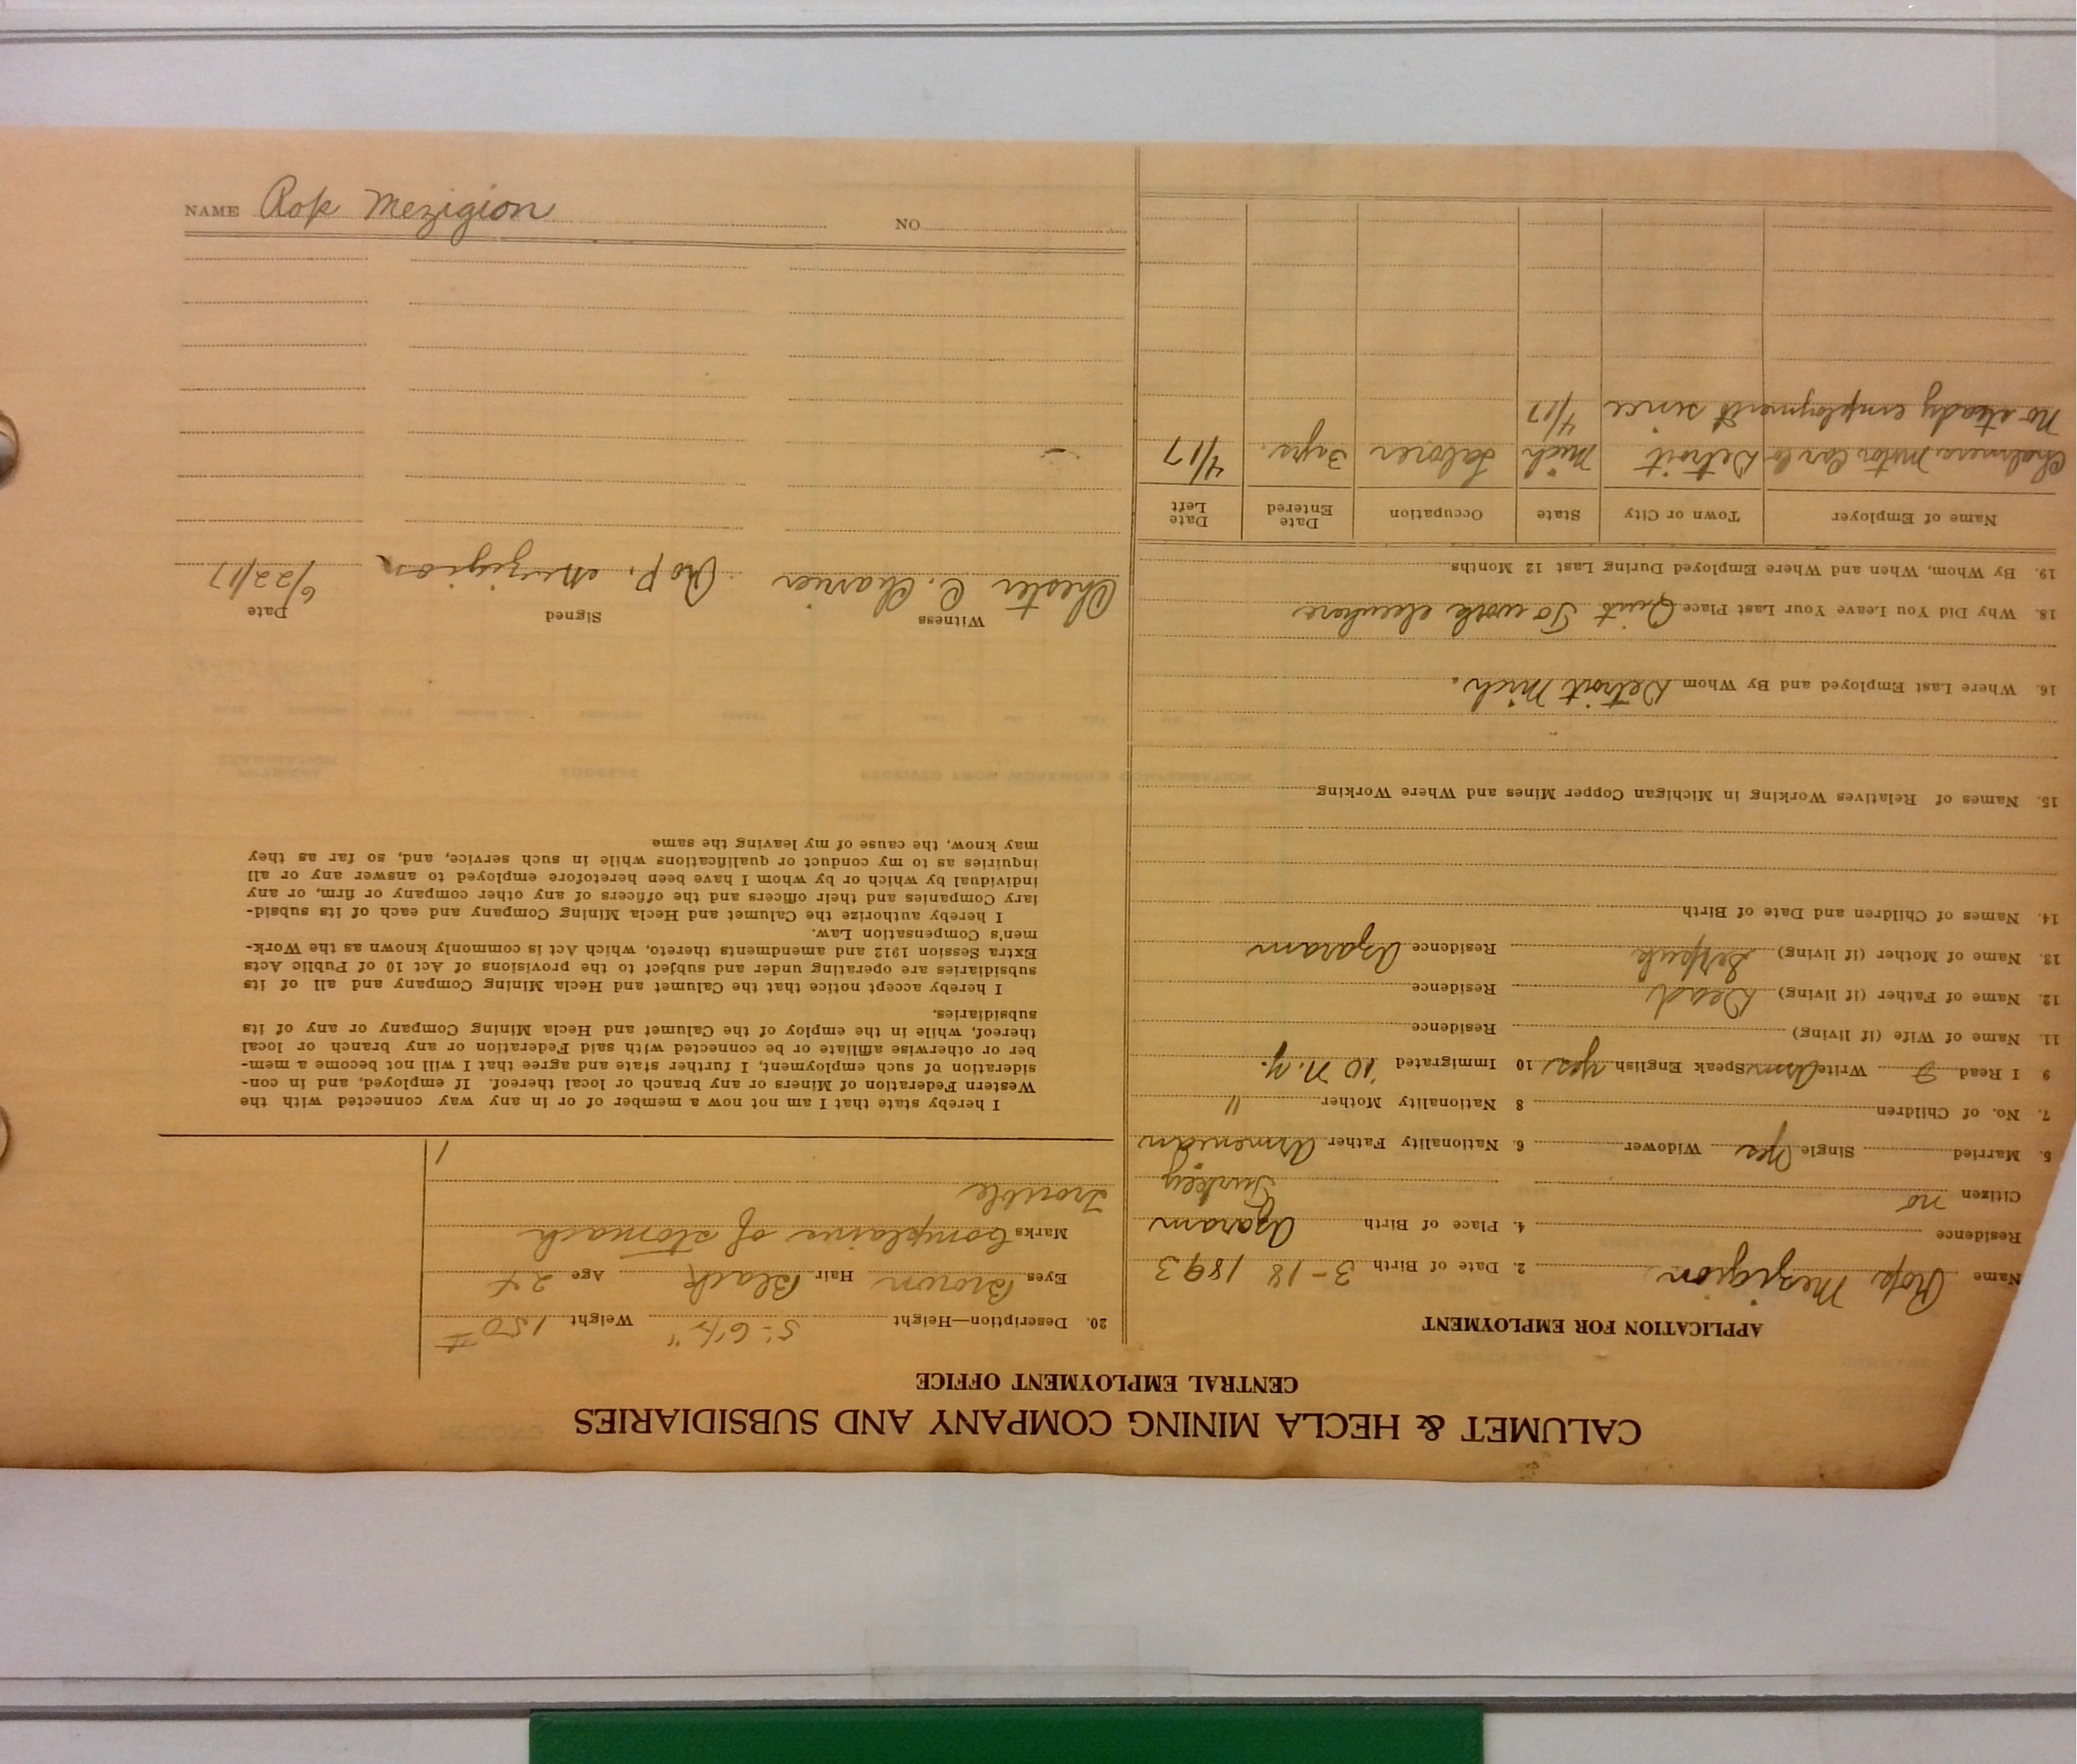 CALUMET & HECLA MINING COMPANY AND SUBSIDIARIES
CENTRAL EMPLOYMENT OFFICE
APPLICATION FOR EMPLOYMENT
Name Rop Mezigion 2. Date of Birth 3-18 1893
Residence 4. Place of Birth Azaram
Citizen no Turkey
5. Married Single Yes Widower 6. Nationality Father Armenian
7. No. of Children 8 Nationality Mother "
9 I Read Write Speak English yes 10 Immigrated '10 N.Y.
11. Name of Wife (if living) Residence
12. Name of Father (if living) Dead Residence
13. Name of Mother (if living) Residence Azaram
14. Names of Children and Date of Birth
15. Names of Relatives Working in Michigan Copper Mines and Where Working
16. Where Last Employed and By Whom Detroit Mich.
18. Why Did You Leave Your Last Place Quit To work elsewhere
19. By Whom, When and Where Employed During Last 12 Months
Name of Employer Town or City State Occupation Date Entered Date Left
Chalmers Motor Car Co Detroit Mich Laborer 3 yrs. 4/17
No steady employment since 4/17
20. Description—Height 5'-6½" Weight 150#
Eyes Brown Hair Black Age 24
Marks Complains of stomach
Trouble
I hereby state that I am not now a member of or in any way connected with the
Western Federation of Miners or any branch or local thereof. If employed, and in con-
sideration of such employment, I further state and agree that I will not become a mem-
ber or otherwise affiliate or be connected with said Federation or any branch or local
thereof, while in the employ of the Calumet and Hecla Mining Company or any of its
subsidiaries.
I hereby accept notice that the Calumet and Hecla Mining Company and all of its
subsidiaries are operating under and subject to the provisions of Act 10 of Public Acts
Extra Session 1912 and amendments thereto, which Act is commonly known as the Work-
men's Compensation Law.
I hereby authorize the Calumet and Hecla Mining Company and each of its subsid-
iary Companies and their officers and the officers of any other company or firm, or any
individual by which or by whom I have been heretofore employed to answer any or all
inquiries as to my conduct or qualifications while in such service, and, so far as they
may know, the cause of my leaving the same
Witness Signed Date
Chester C. Charier Rop. Mezigion 6/22/17
NAME Rop Mezigion NO